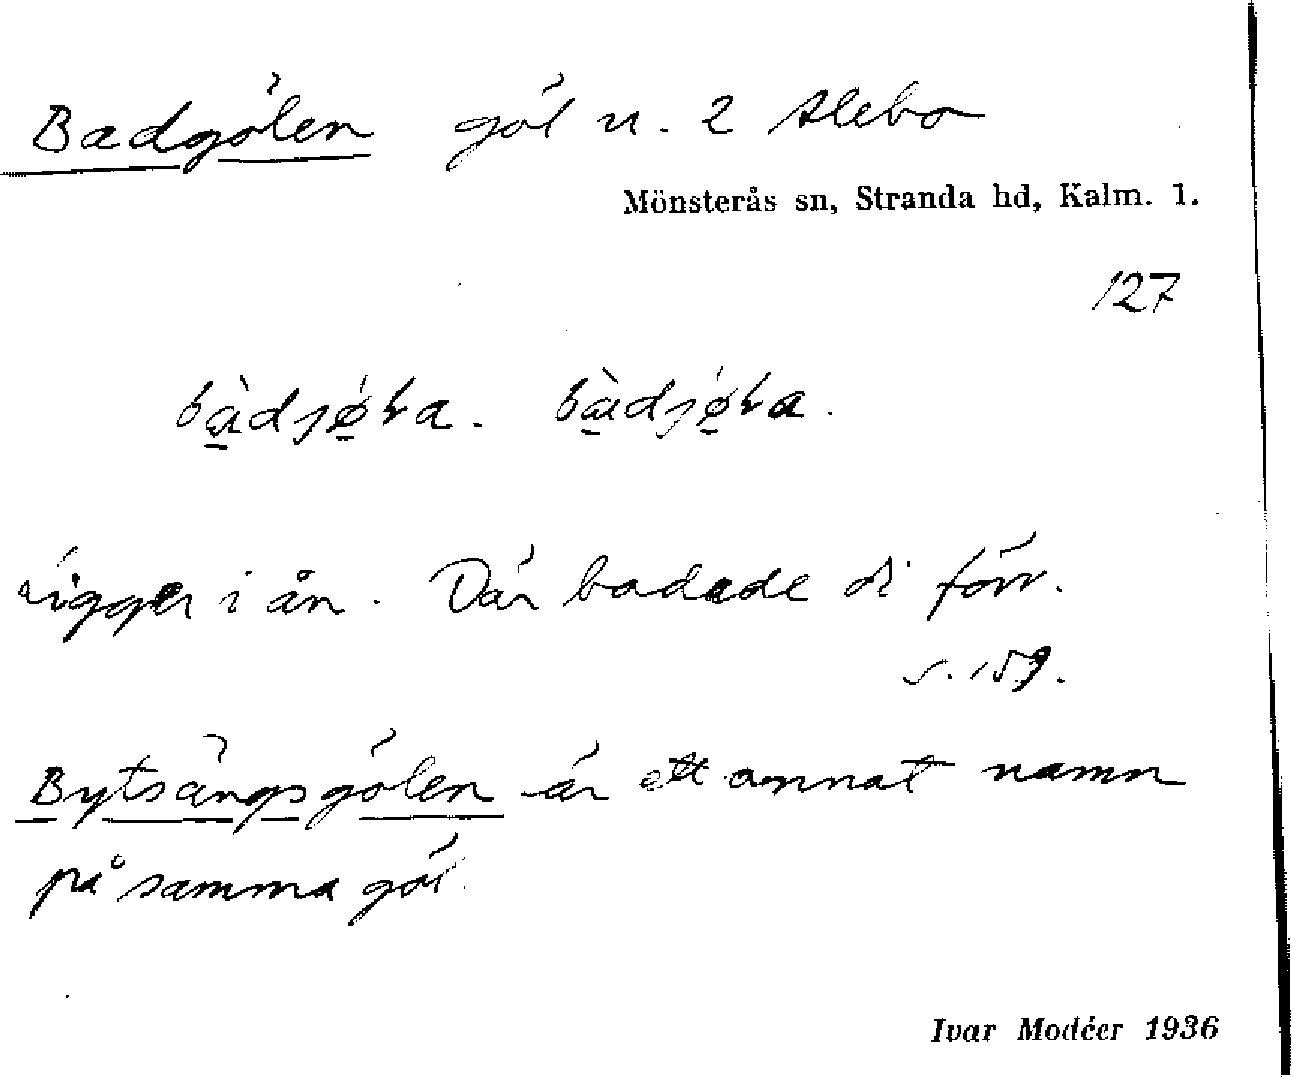 Badgölen göl n. 2 Alebo
Mönsterås sn, Stranda hd, Kalm. 1.
127
bàdjø̀ka. bàdjø̀ka.
Ligger i ån. Där badade di förr.
s. 159.
Bytsängsgölen är ett annat namn
på samma göl.
Ivar Modéer 1936